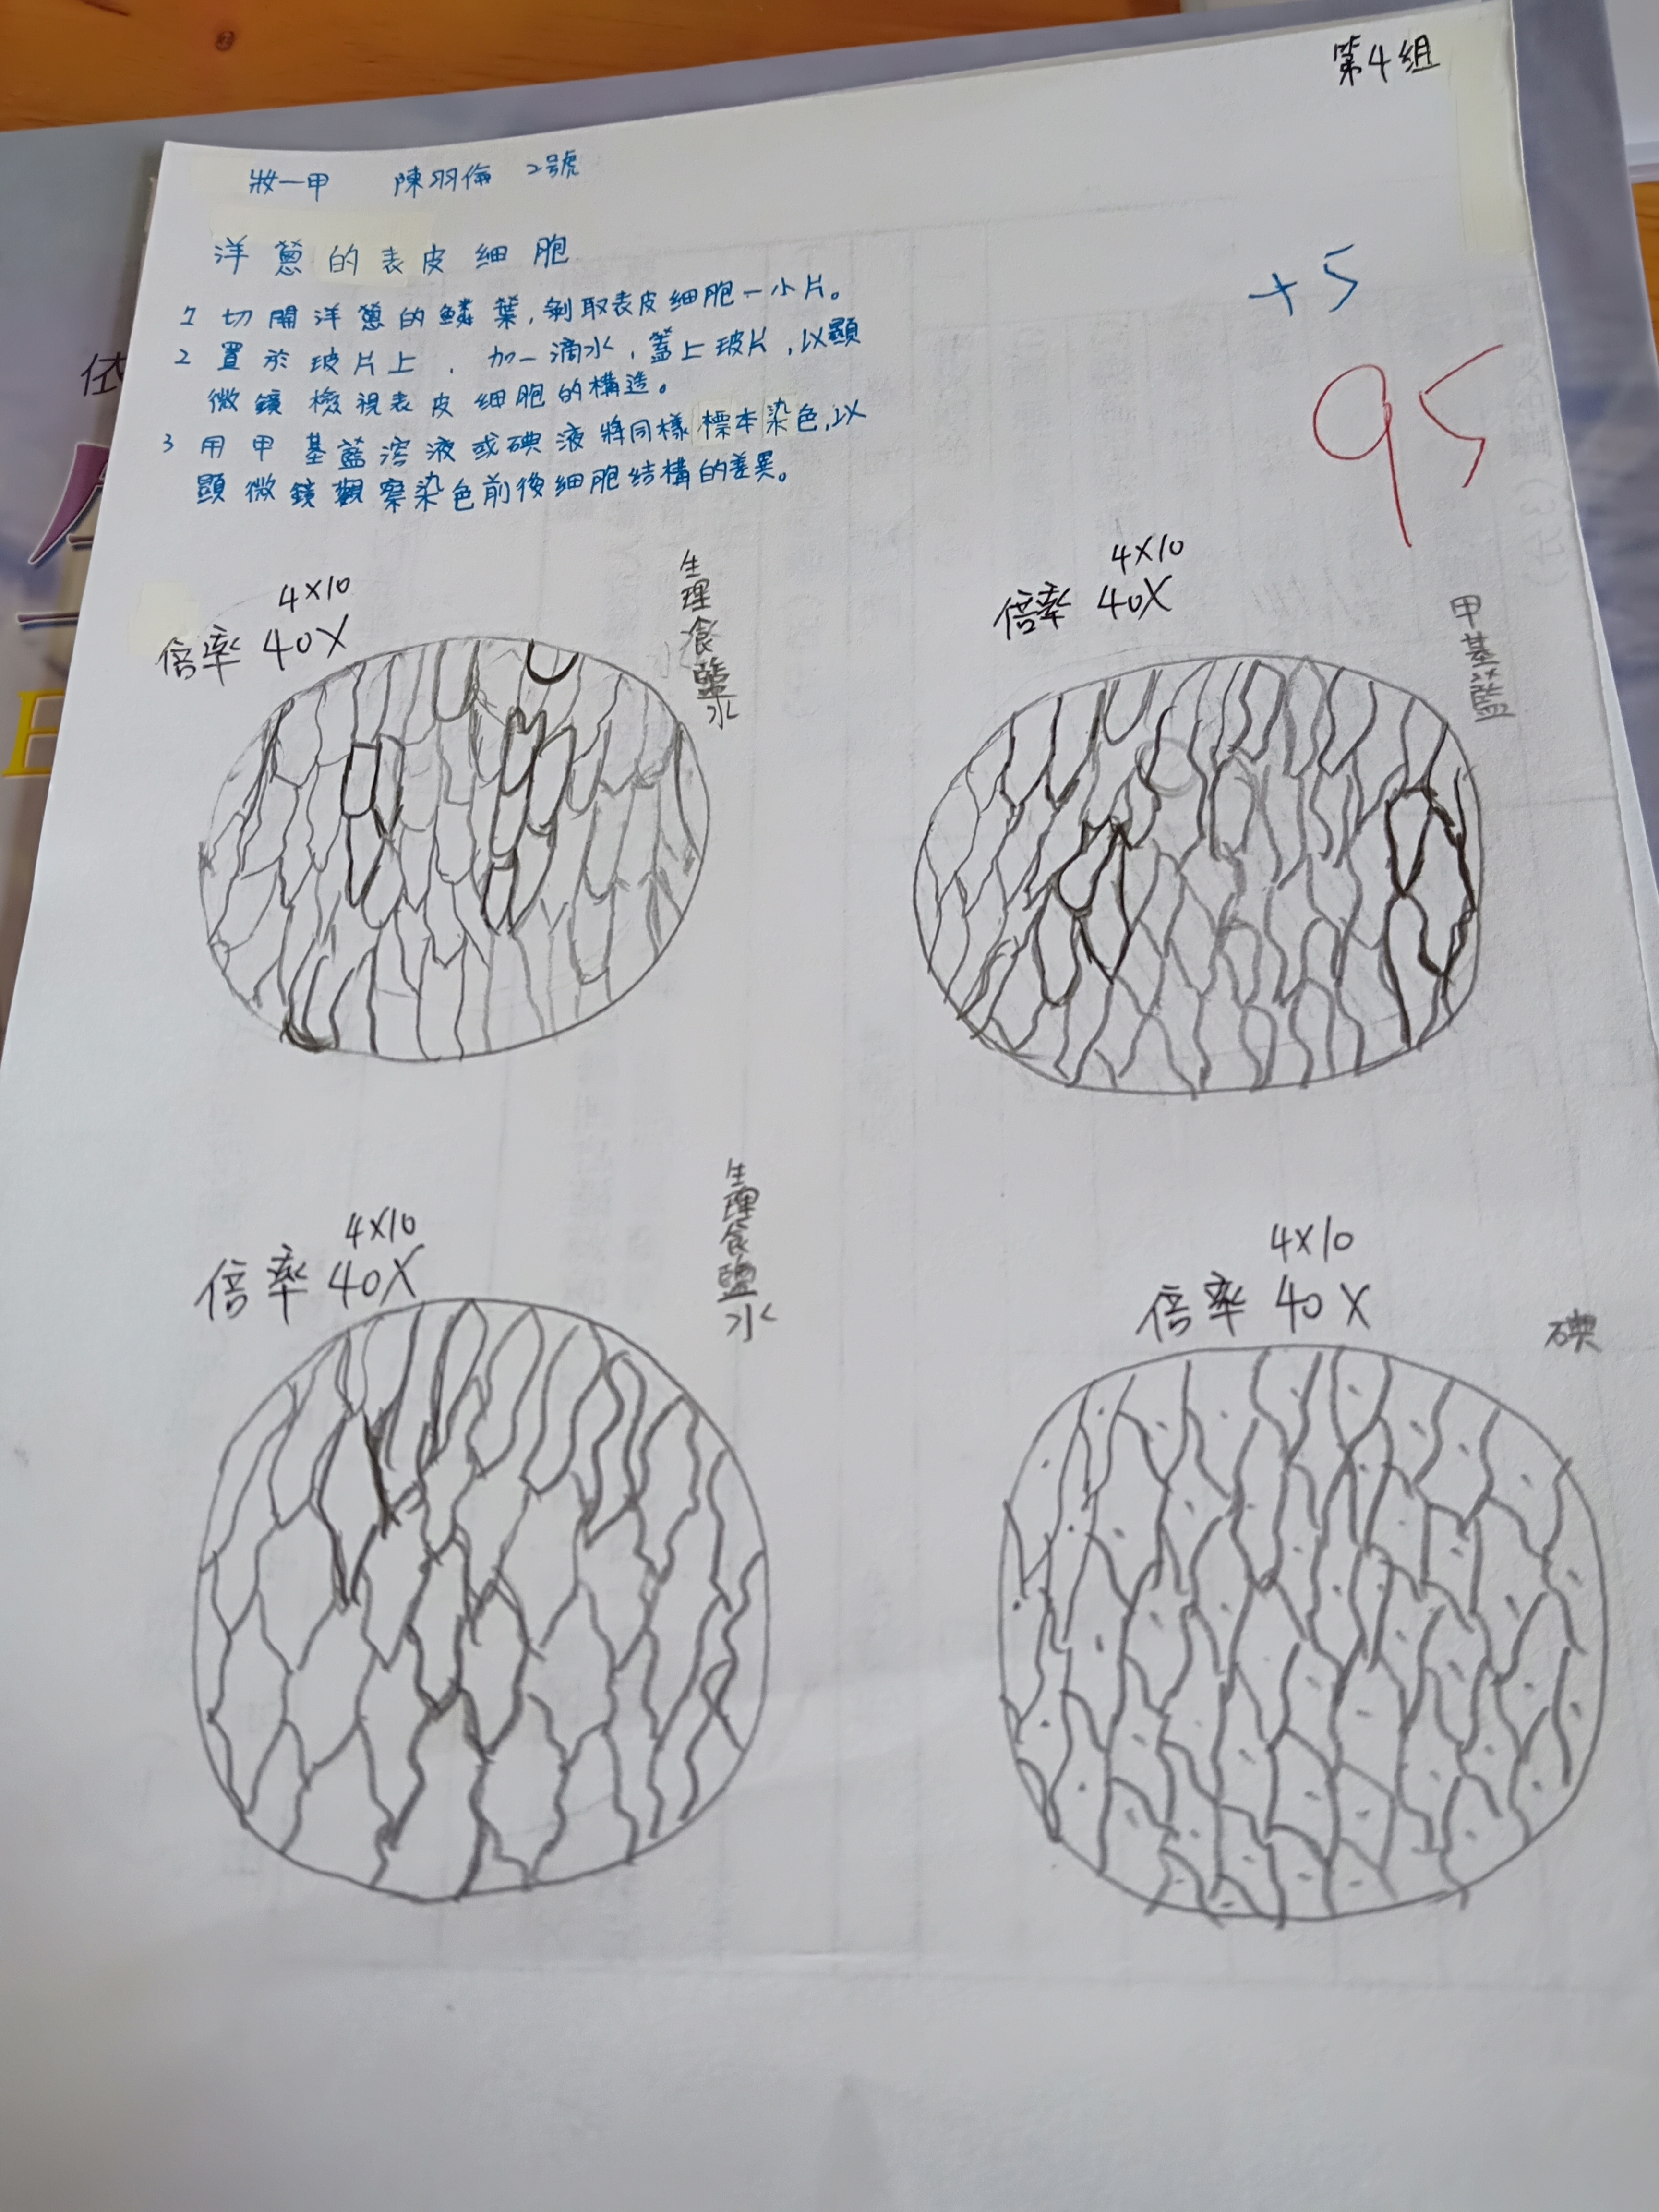 第4組
妝一甲 陳羽倫 2號
洋蔥的表皮細胞
+5
1 切開洋蔥的鱗葉,剝取表皮細胞一小片。
2 置於玻片上,加一滴水,蓋上玻片,以顯
微鏡檢視表皮細胞的構造。
95
3 用甲基藍溶液或碘液將同樣標本染色,以
顯微鏡觀察染色前後細胞結構的差異。
4X10
倍率 40X
生理食鹽水
4X10
倍率 40X
甲基藍
4X10
倍率 40X
生理食鹽水
4X10
倍率 40X
碘
依